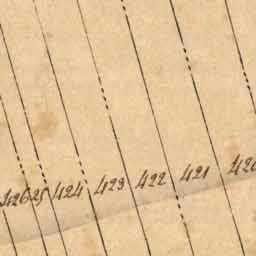 426 425 424 423 422 421 420